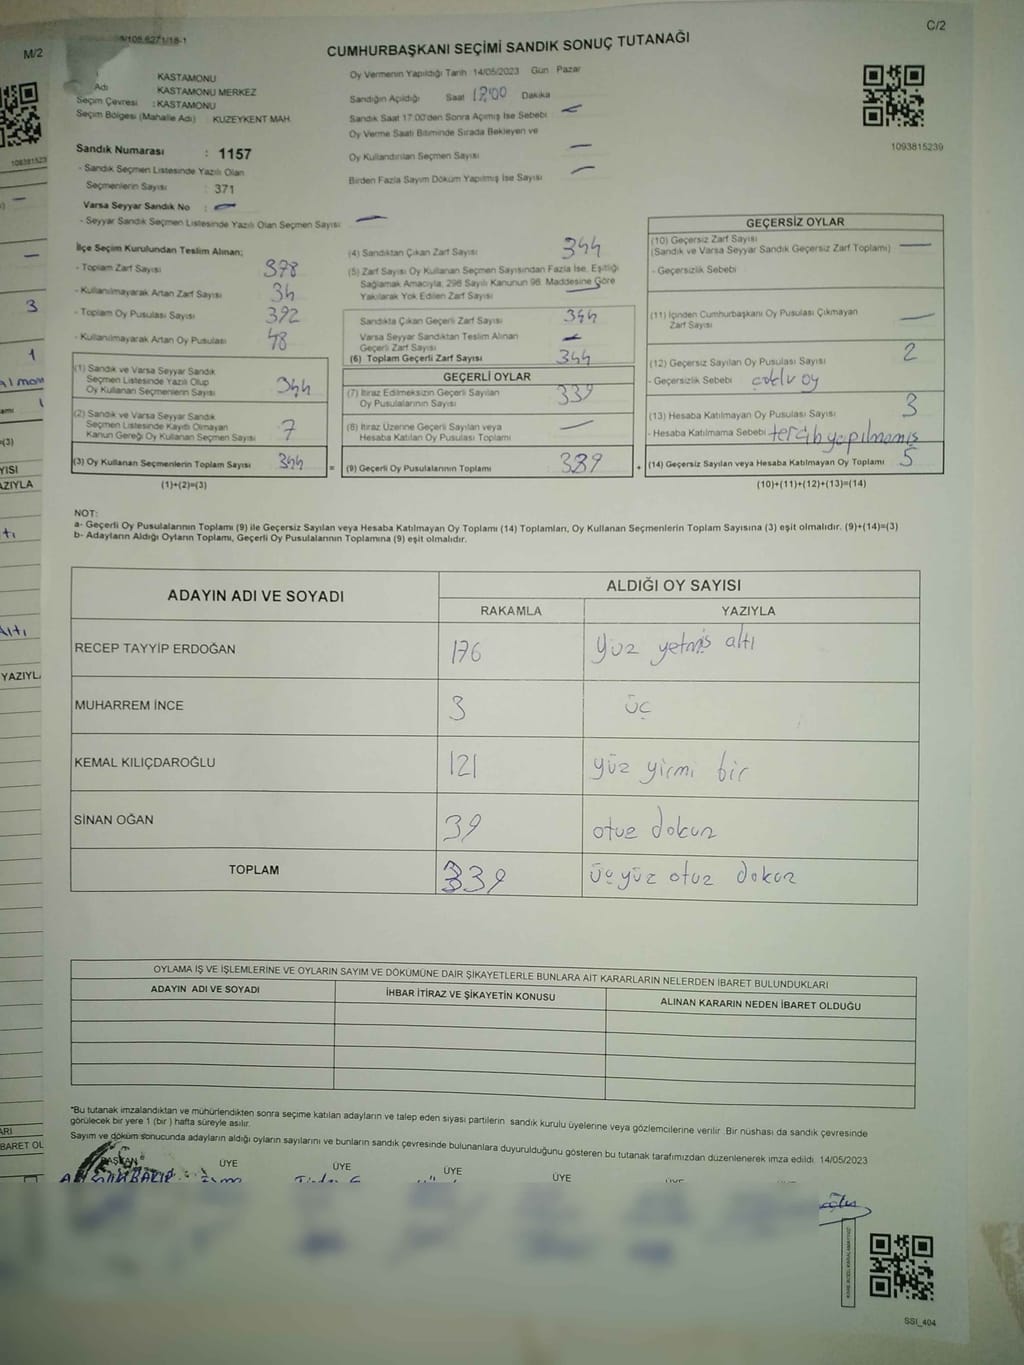 C/2
M/2
CUMHURBAŞKANI SEÇİMİ SANDIK SONUÇ TUTANAĞI
KASTAMONU
Adı KASTAMONU MERKEZ
Seçim Çevresi : KASTAMONU
Seçim Bölgesi (Mahalle Adı) KUZEYKENT MAH.
Oy Vermenin Yapıldığı Tarih 14/05/2023 Gün Pazar
Sandığın Açıldığı Saat Dakika
Sandık Saat 17:00'den Sonra Açımış İse Sebebi
Oy Verme Saati Bitiminde Sırada Bekleyen ve
Oy Kullandırılan Seçmen Sayısı
Birden Fazla Sayım Döküm Yapılmış İse Sayısı
1093815239
Sandık Numarası : 1157
- Sandık Seçmen Listesinde Yazılı Olan
Seçmenlerin Sayısı : 371
Varsa Seyyar Sandık No :
- Seyyar Sandık Seçmen Listesinde Yazılı Olan Seçmen Sayısı
İlçe Seçim Kurulundan Teslim Alınan;
- Toplam Zarf Sayısı 378
- Kullanılmayarak Artan Zarf Sayısı 34
- Toplam Oy Pusulası Sayısı 392
- Kullanılmayarak Artan Oy Pusulası 48
(1) Sandık ve Varsa Seyyar Sandık
Seçmen Listesinde Yazılı Olup
Oy Kullanan Seçmenlerin Sayısı 344
(2) Sandık ve Varsa Seyyar Sandık
Seçmen Listesinde Kayıtlı Olmayan
Kanun Gereği Oy Kullanan Seçmen Sayısı 7
(3) Oy Kullanan Seçmenlerin Toplam Sayısı 344 =
(1)+(2)=(3)
(4) Sandıktan Çıkan Zarf Sayısı 344
(5) Zarf Sayısı Oy Kullanan Seçmen Sayısından Fazla İse, Eşitliği
Sağlamak Amacıyla, 298 Sayılı Kanunun 98. Maddesine Göre
Yakılarak Yok Edilen Zarf Sayısı
Sandıkta Çıkan Geçerli Zarf Sayısı 344
Varsa Seyyar Sandıktan Teslim Alınan
Geçerli Zarf Sayısı
(6) Toplam Geçerli Zarf Sayısı 344
GEÇERLİ OYLAR
(7) İtiraz Edilmeksizin Geçerli Sayılan
Oy Pusulalarının Sayısı 339
(8) İtiraz Üzerine Geçerli Sayılan veya
Hesaba Katılan Oy Pusulası Toplamı
(9) Geçerli Oy Pusulalarının Toplamı 339 +
GEÇERSİZ OYLAR
(10) Geçersiz Zarf Sayısı
(Sandık ve Varsa Seyyar Sandık Geçersiz Zarf Toplamı)
- Geçersizlik Sebebi
(11) İçinden Cumhurbaşkanı Oy Pusulası Çıkmayan
Zarf Sayısı
(12) Geçersiz Sayılan Oy Pusulası Sayısı 2
- Geçersizlik Sebebi çoklu oy
(13) Hesaba Katılmayan Oy Pusulası Sayısı 3
- Hesaba Katılmama Sebebi tercih yapılmamış
(14) Geçersiz Sayılan veya Hesaba Katılmayan Oy Toplamı 5
(10)+(11)+(12)+(13)=(14)
NOT:
a- Geçerli Oy Pusulalarının Toplamı (9) ile Geçersiz Sayılan veya Hesaba Katılmayan Oy Toplamı (14) Toplamları, Oy Kullanan Seçmenlerin Toplam Sayısına (3) eşit olmalıdır. (9)+(14)=(3)
b- Adayların Aldığı Oyların Toplamı, Geçerli Oy Pusulalarının Toplamına (9) eşit olmalıdır.
ADAYIN ADI VE SOYADI ALDIĞI OY SAYISI
RAKAMLA YAZIYLA
RECEP TAYYİP ERDOĞAN 176 yüz yetmiş altı
MUHARREM İNCE 3 üç
KEMAL KILIÇDAROĞLU 121 yüz yirmi bir
SİNAN OĞAN 39 otuz dokuz
TOPLAM 339 üçyüz otuz dokuz
OYLAMA İŞ VE İŞLEMLERİNE VE OYLARIN SAYIM VE DÖKÜMÜNE DAİR ŞİKAYETLERLE BUNLARA AİT KARARLARIN NELERDEN İBARET BULUNDUKLARI
ADAYIN ADI VE SOYADI İHBAR İTİRAZ VE ŞİKAYETİN KONUSU ALINAN KARARIN NEDEN İBARET OLDUĞU
"Bu tutanak imzalandıktan ve mühürlendikten sonra seçime katılan adayların ve talep eden siyasi partilerin sandık kurulu üyelerine veya gözlemcilerine verilir. Bir nüshası da sandık çevresinde
görülecek bir yere 1 (bir) hafta süreyle asılır.
Sayım ve döküm sonucunda adayların aldığı oyların sayılarını ve bunların sandık çevresinde bulunanlara duyurulduğunu gösteren bu tutanak tarafımızdan düzenlenerek imza edildi. 14/05/2023
BAŞKAN ÜYE ÜYE ÜYE ÜYE
SSI_404